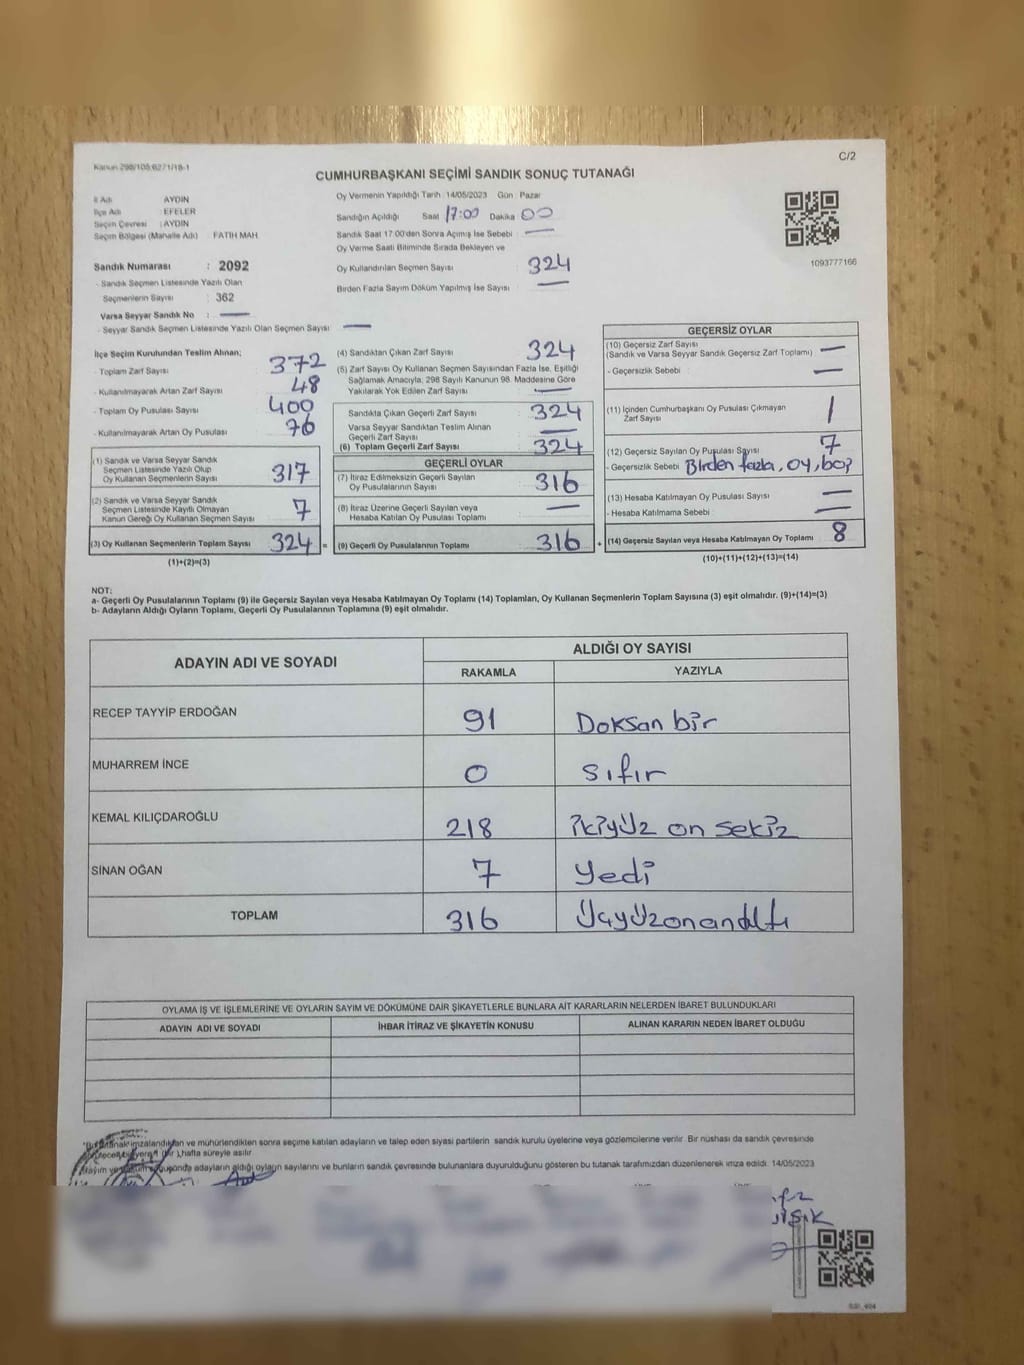 Kanun 298/105;6271/18-1
C/2
CUMHURBAŞKANI SEÇİMİ SANDIK SONUÇ TUTANAĞI
İl Adı AYDIN
İlçe Adı : EFELER
Seçim Çevresi : AYDIN
Seçim Bölgesi (Mahalle Adı) FATİH MAH.
Sandık Numarası : 2092
- Sandık Seçmen Listesinde Yazılı Olan
Seçmenlerin Sayısı : 362
Varsa Seyyar Sandık No :
- Seyyar Sandık Seçmen Listesinde Yazılı Olan Seçmen Sayısı:
Oy Vermenin Yapıldığı Tarih :14/05/2023 Gün : Pazar
Sandığın Açıldığı Saat 17:00 Dakika 00
Sandık Saat 17.00'den Sonra Açımış İse Sebebi :
Oy Verme Saati Bitiminde Sırada Bekleyen ve
Oy Kullandırılan Seçmen Sayısı : 324
Birden Fazla Sayım Döküm Yapılmış İse Sayısı :
1093777166
İlçe Seçim Kurulundan Teslim Alınan;
- Toplam Zarf Sayısı : 372
- Kullanılmayarak Artan Zarf Sayısı : 48
- Toplam Oy Pusulası Sayısı : 400
- Kullanılmayarak Artan Oy Pusulası : 76
(1) Sandık ve Varsa Seyyar Sandık
Seçmen Listesinde Yazılı Olup
Oy Kullanan Seçmenlerin Sayısı : 317
(2) Sandık ve Varsa Seyyar Sandık
Seçmen Listesinde Kayıtlı Olmayan
Kanun Gereği Oy Kullanan Seçmen Sayısı : 7
(3) Oy Kullanan Seçmenlerin Toplam Sayısı : 324 =
(1)+(2)=(3)
(4) Sandıktan Çıkan Zarf Sayısı : 324
(5) Zarf Sayısı Oy Kullanan Seçmen Sayısından Fazla İse, Eşitliği
Sağlamak Amacıyla, 298 Sayılı Kanunun 98. Maddesine Göre
Yakılarak Yok Edilen Zarf Sayısı :
Sandıkta Çıkan Geçerli Zarf Sayısı : 324
Varsa Seyyar Sandıktan Teslim Alınan
Geçerli Zarf Sayısı :
(6) Toplam Geçerli Zarf Sayısı : 324
GEÇERLİ OYLAR
(7) İtiraz Edilmeksizin Geçerli Sayılan
Oy Pusulalarının Sayısı : 316
(8) İtiraz Üzerine Geçerli Sayılan veya
Hesaba Katılan Oy Pusulası Toplamı :
(9) Geçerli Oy Pusulalarının Toplamı : 316 +
GEÇERSİZ OYLAR
(10) Geçersiz Zarf Sayısı :
(Sandık ve Varsa Seyyar Sandık Geçersiz Zarf Toplamı)
- Geçersizlik Sebebi :
(11) İçinden Cumhurbaşkanı Oy Pusulası Çıkmayan
Zarf Sayısı : 1
(12) Geçersiz Sayılan Oy Pusulası Sayısı : 7
- Geçersizlik Sebebi : Birden fazla, oy, boş
(13) Hesaba Katılmayan Oy Pusulası Sayısı :
- Hesaba Katılmama Sebebi :
(14) Geçersiz Sayılan veya Hesaba Katılmayan Oy Toplamı : 8
(10)+(11)+(12)+(13)=(14)
NOT:
a- Geçerli Oy Pusulalarının Toplamı (9) ile Geçersiz Sayılan veya Hesaba Katılmayan Oy Toplamı (14) Toplamları, Oy Kullanan Seçmenlerin Toplam Sayısına (3) eşit olmalıdır. (9)+(14)=(3)
b- Adayların Aldığı Oyların Toplamı, Geçerli Oy Pusulalarının Toplamına (9) eşit olmalıdır.
ADAYIN ADI VE SOYADI
ALDIĞI OY SAYISI
RAKAMLA YAZIYLA
RECEP TAYYİP ERDOĞAN 91 Doksan bir
MUHARREM İNCE 0 sıfır
KEMAL KILIÇDAROĞLU 218 ikiyüz on sekiz
SİNAN OĞAN 7 Yedi
TOPLAM 316 Üçyüzonaltı
OYLAMA İŞ VE İŞLEMLERİNE VE OYLARIN SAYIM VE DÖKÜMÜNE DAİR ŞİKAYETLERLE BUNLARA AİT KARARLARIN NELERDEN İBARET BULUNDUKLARI
ADAYIN ADI VE SOYADI İHBAR İTİRAZ VE ŞİKAYETİN KONUSU ALINAN KARARIN NEDEN İBARET OLDUĞU
imzalandıktan ve mühürlendikten sonra seçime katılan adayların ve talep eden siyasi partilerin sandık kurulu üyelerine veya gözlemcilerine verilir. Bir nüshası da sandık çevresinde
hafta süreyle asılır.
adayların aldığı oyların sayılarını ve bunların sandık çevresinde bulunanlara duyurulduğunu gösteren bu tutanak tarafımızdan düzenlenerek imza edildi. 14/05/2023